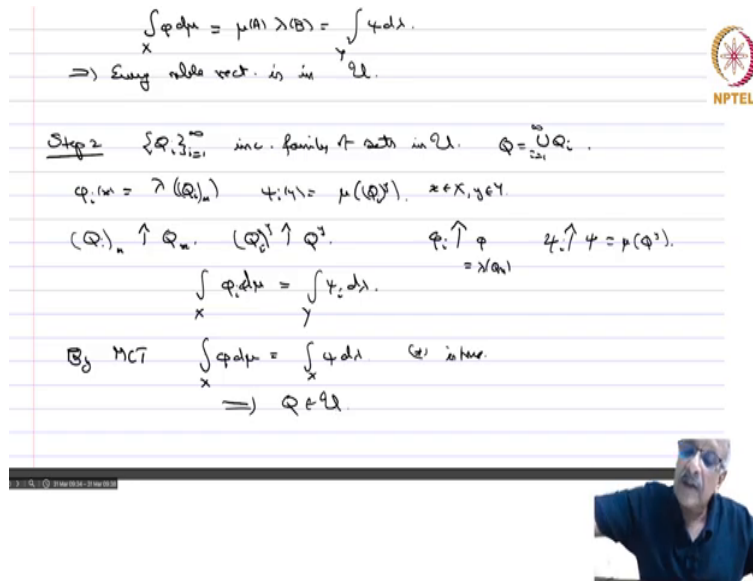 ∫_X φ dμ = μ(A) λ(B) = ∫_Y ψ dλ.
⇒ Every mble rect. is in 𝒰.
NPTEL
Step 2 {Q_i}_{i=1}^∞ inc. family of sets in 𝒰. Q = ⋃_{i=1}^∞ Q_i.
φ_i(x) = λ((Q_i)_x) ψ_i(y) = μ((Q_i)^y). x∈X, y∈Y.
(Q_i)_x ↑ Q_x. (Q_i)^y ↑ Q^y. φ_i ↑ φ ψ_i ↑ ψ = μ(Q^y).
= λ(Q_x)
∫_X φ_i dμ = ∫_Y ψ_i dλ.
By MCT ∫_X φ dμ = ∫_X ψ dλ (*) is true.
⇒ Q ∈ 𝒰.
31 Mar 09:34 - 31 Mar 09:38